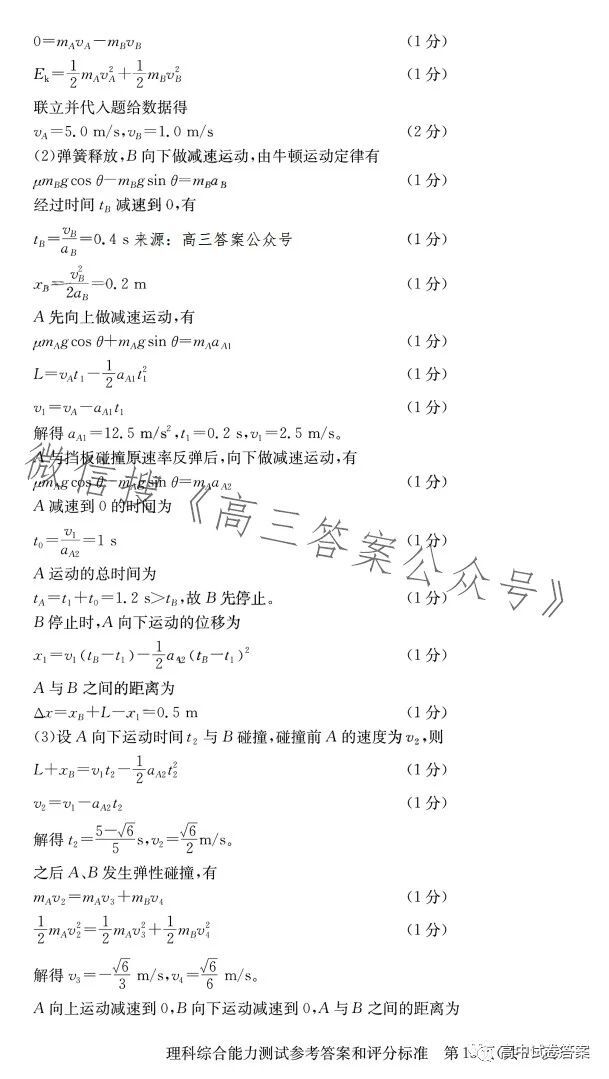 0=m_Av_A-m_Bv_B (1分)
E_k=\frac{1}{2}m_Av_A^2+\frac{1}{2}m_Bv_B^2 (1分)
联立并代入题给数据得
v_A=5.0 m/s,v_B=1.0 m/s (2分)
(2)弹簧释放,B向下做减速运动,由牛顿运动定律有
μm_Bgcos θ-m_Bgsin θ=m_Ba_B (1分)
经过时间t_B减速到0,有
t_B=\frac{v_B}{a_B}=0.4 s 来源: 高三答案公众号 (1分)
x_B=\frac{v_B^2}{2a_B}=0.2 m (1分)
A先向上做减速运动,有
μm_Agcos θ+m_Agsin θ=m_Aa_{A1} (1分)
L=v_At_1-\frac{1}{2}a_{A1}t_1^2 (1分)
v_1=v_A-a_{A1}t_1 (1分)
解得a_{A1}=12.5 m/s^2,t_1=0.2 s,v_1=2.5 m/s。
A与挡板碰撞原速率反弹后,向下做减速运动,有
μm_Agcos θ-m_Agsin θ=m_Aa_{A2} (1分)
A减速到0的时间为
t_0=\frac{v_1}{a_{A2}}=1 s (1分)
A运动的总时间为
t_A=t_1+t_0=1.2 s>t_B,故B先停止。 (1分)
B停止时,A向下运动的位移为
x_1=v_1(t_B-t_1)-\frac{1}{2}a_{A2}(t_B-t_1)^2 (1分)
A与B之间的距离为
Δx=x_B+L-x_1=0.5 m (1分)
(3)设A向下运动时间t_2与B碰撞,碰撞前A的速度为v_2,则
L+x_B=v_1t_2-\frac{1}{2}a_{A2}t_2^2 (1分)
v_2=v_1-a_{A2}t_2 (1分)
解得t_2=\frac{5-\sqrt{6}}{5}s,v_2=\frac{\sqrt{6}}{2}m/s。
之后A、B发生弹性碰撞,有
m_Av_2=m_Av_3+m_Bv_4 (1分)
\frac{1}{2}m_Av_2^2=\frac{1}{2}m_Av_3^2+\frac{1}{2}m_Bv_4^2 (1分)
解得v_3=-\frac{\sqrt{6}}{3} m/s,v_4=\frac{\sqrt{6}}{6} m/s。
A向上运动减速到0,B向下运动减速到0,A与B之间的距离为
微信搜《高三答案公众号》
理科综合能力测试参考答案和评分标准 第1
高中试卷答案